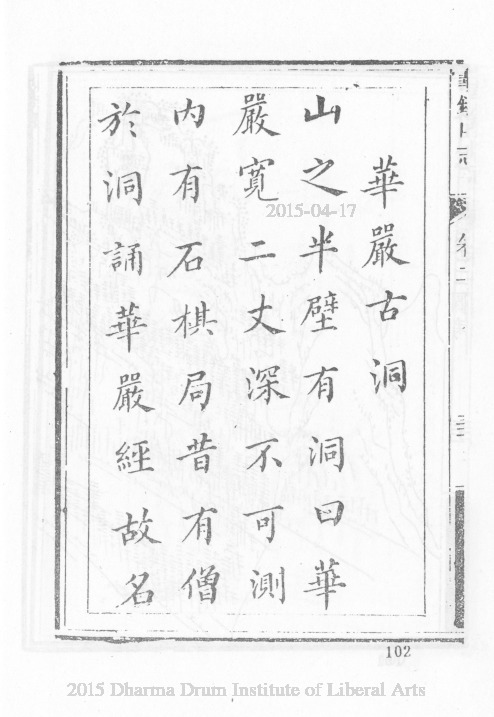 華嚴古洞
山之半壁有洞曰華
嚴寬二丈深不可測
內有石棋局昔有僧
於洞誦華嚴經故名
卷二
2015-04-17
102
2015 Dharma Drum Institute of Liberal Arts